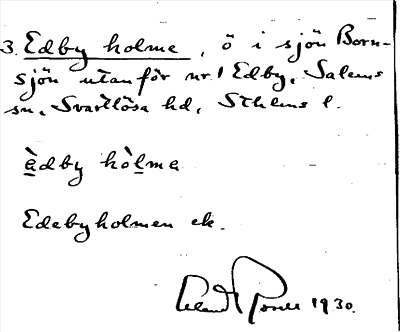 3. Edby holme, ö i sjön Born-
sjön utanför nr 1 Edby, Salems
sn, Svartlösa hd, Sthlms l.
èdby hòlma
Edebyholmen ek.
1930.